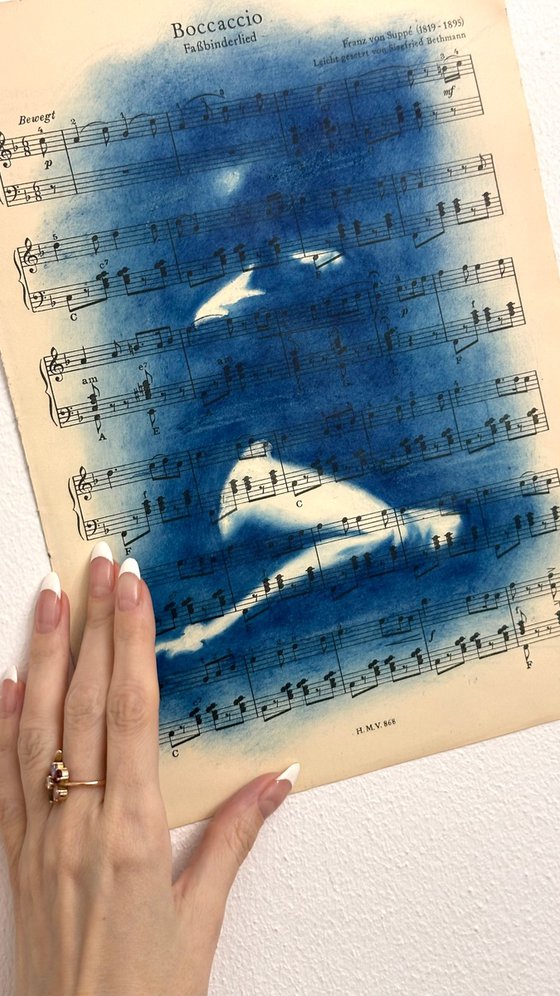 Boccaccio
Faßbinderlied
Franz von Suppé (1819 - 1895)
Leicht gesetzt von Siegfried Bethmann
Bewegt
mf
p
c7
C
p
am
e7
am
f
A
E
F
f
C
F
f
F
C
H. M.V. 868